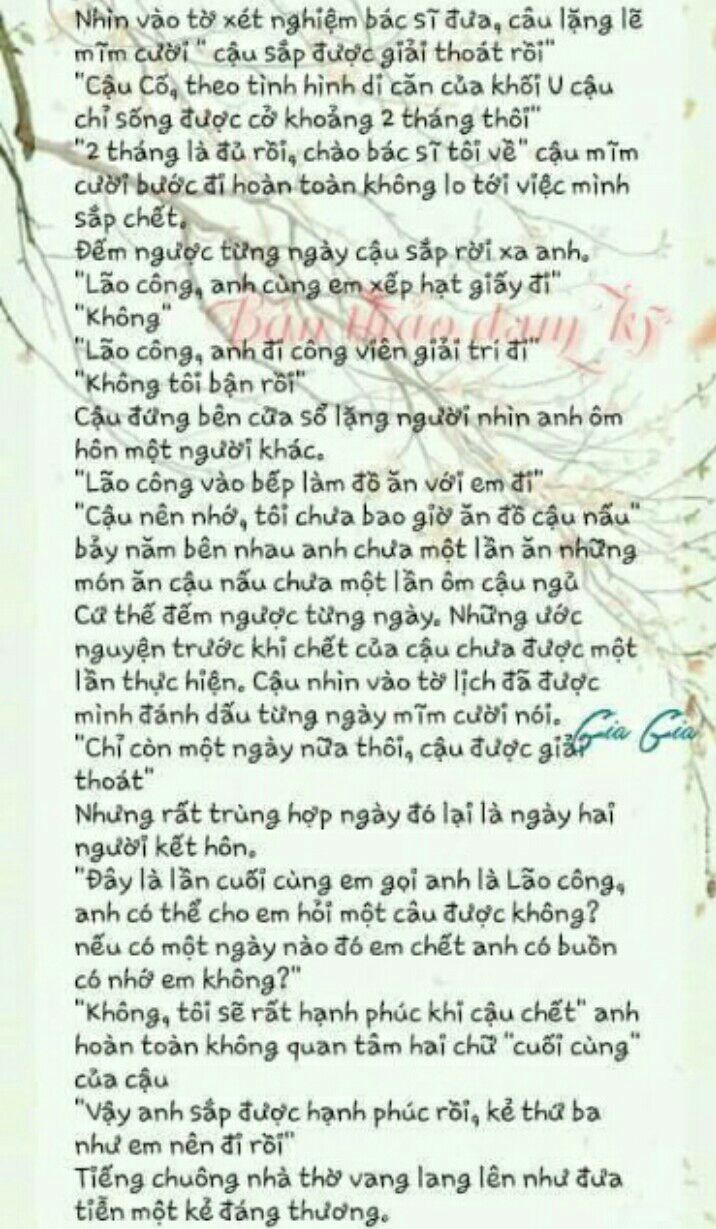 Nhìn vào tờ xét nghiệm bác sĩ đưa, câu lặng lẽ
mĩm cười " cậu sắp được giải thoát rồi"
"Cậu Cố, theo tình hình di căn của khối U cậu
chỉ sống được cở khoảng 2 tháng thôi"
"2 tháng là đủ rồi, chào bác sĩ tôi về" cậu mĩm
cười bước đi hoàn toàn không lo tới việc mình
sắp chết.
Đếm ngược từng ngày cậu sắp rời xa anh.
"Lão công, anh cùng em xếp hạt giấy đi"
"Không"
Bản thảo đam kỳ
"Lão công, anh đi công viên giải trí đi"
"Không tôi bận rồi"
Cậu đứng bên cữa sổ lặng người nhìn anh ôm
hôn một người khác.
"Lão công vào bếp làm đồ ăn với em đi"
"Cậu nên nhớ, tôi chưa bao giờ ăn đồ cậu nấu"
bảy năm bên nhau anh chưa một lần ăn những
món ăn cậu nấu chưa một lần ôm cậu ngủ
Cứ thế đếm ngược từng ngày. Những ước
nguyện trước khi chết của cậu chưa được một
lần thực hiện. Cậu nhìn vào tờ lịch đã được
mình đánh dấu từng ngày mĩm cười nói.
Gia Gia
"Chỉ còn một ngày nữa thôi, cậu được giải
thoát"
Nhưng rất trùng hợp ngày đó lại là ngày hai
người kết hôn.
"Đây là lần cuối cùng em gọi anh là Lão công,
anh có thể cho em hỏi một câu được không?
nếu có một ngày nào đó em chết anh có buồn
có nhớ em không?"
"Không, tôi sẽ rất hạnh phúc khi cậu chết" anh
hoàn toàn không quan tâm hai chữ "cuối cùng"
của cậu
"Vậy anh sắp được hạnh phúc rồi, kẻ thứ ba
như em nên đi rồi"
Tiếng chuông nhà thờ vang lang lên như đưa
tiễn một kẻ đáng thương.